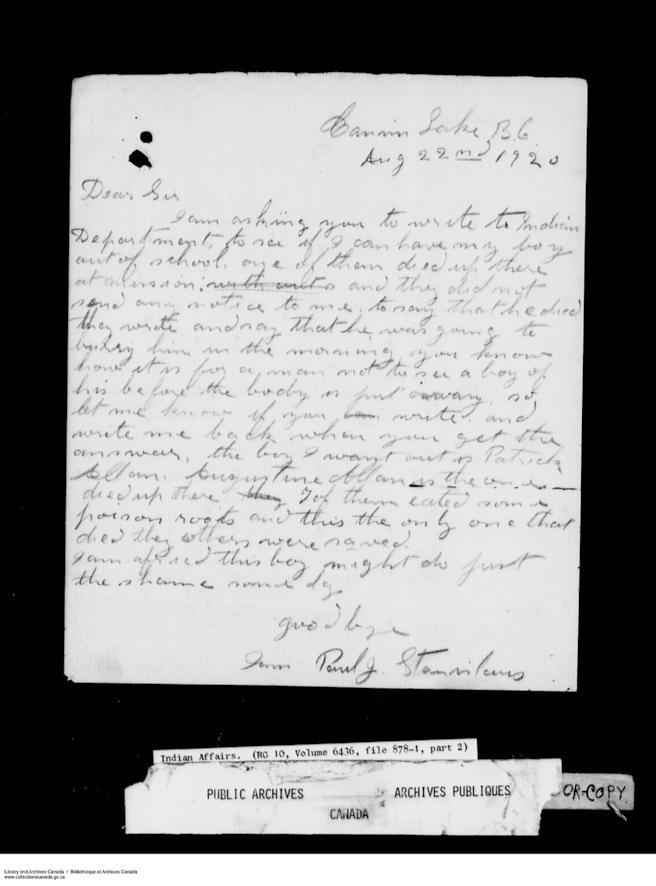 Canim Lake, B.C.
Aug 22nd 1920
Dear Sir
I am asking you to write to Indian
Department, to see if I can have my boy
out of school. one of them died up there
at mission, with out and they did not
send any notice to me, to say that he died
they write and say that he was going to
burry him in the morning, you know
how it is for a man not to see a boy of
his before the body is put away, so
let me know if you write and
write me back when you get the
answear, the boy I want out is Patrick
Allan. Augustine Allan is the one
died up there they 7 of them eated some
poison roots and this the only one that
died they others were saved.
I am afried this boy might do just
the shame some day
good bye
Iam Paul J. Stanislaus
Indian Affairs. (RG 10, Volume 6436, file 878-1, part 2)
PUBLIC ARCHIVES ARCHIVES PUBLIQUES
CANADA
OR-COPY
Library and Archives Canada / Bibliothèque et Archives Canada
www.collectionscanada.gc.ca